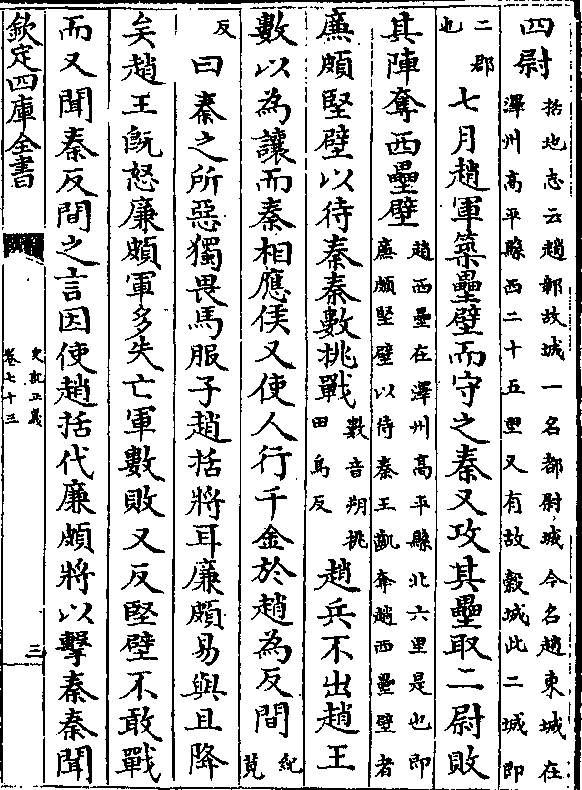 四尉括地志云趙鄣故城一名都尉城今名趙東城在澤州高平縣西二十五里又有故縠城此二城即
二鄣也七月趙軍築壘壁而守之秦又攻其壘取二尉敗
其陣奪西壘壁趙西壘在澤州高平縣北六里是也即廉頗堅壁以待秦王齕奪趙西壘壁者
廉頗堅壁以待秦秦數挑戰數音朔挑田鳥反趙兵不出趙王
數以為讓而秦相應侯又使人行千金於趙為反間紀莧
反曰秦之所惡獨畏馬服子趙括將耳廉頗易與且降
矣趙王旣怒廉頗軍多失亡軍數敗又反堅壁不敢戰
而又聞秦反間之言因使趙括代廉頗將以擊秦秦聞
欽定四庫全書
史記正義
卷七十三
三